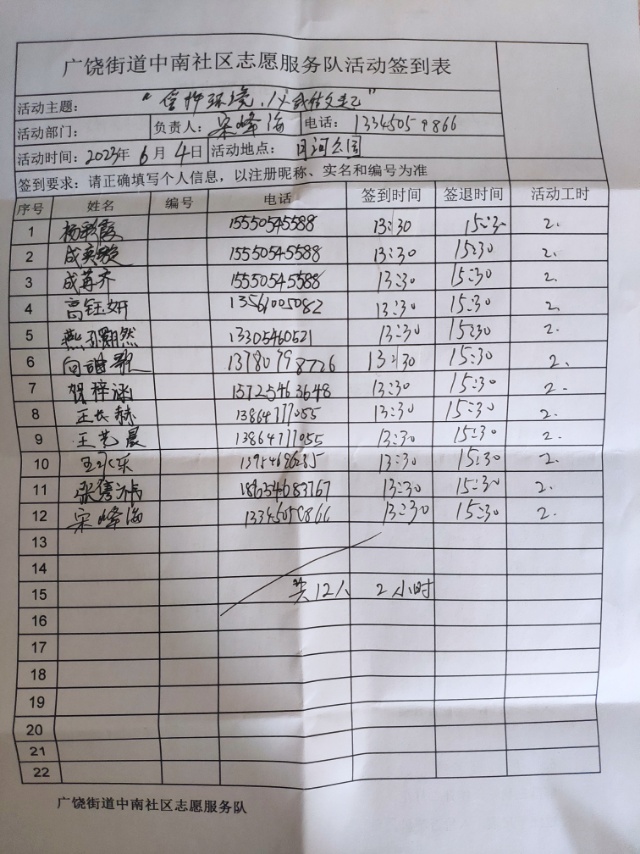 广饶街道中南社区志愿服务队活动签到表
活动主题： 环境，从 做起"
活动部门： 负责人：宋峰海 电话：13345059866
活动时间：2023年6月4日 活动地点： 月河公园
签到要求：请正确填写个人信息，以注册昵称、实名和编号为准
序号 姓名 编号 电话 签到时间 签退时间 活动工时
1 杨彩霞 15550545588 13:30 15:30 2.
2 成奕璇 15550545588 13:30 15:30 2.
3 成苒齐 15550545588 13:30 15:30 2.
4 高钰妍 13561005082 13:30 15:30 2.
5 燕 然 13305460521 13:30 15:30 2.
6 向 歌 13780798726 13:30 15:30 2.
7 贺梓涵 15725463648 13:30 15:30 2.
8 王长赫 13864777055 13:30 15:30 2.
9 王艺晨 13864777055 13:30 15:30 2.
10 王永乐 13954696285 13:30 15:30 2.
11 张 18654683767 13:30 15:30 2.
12 宋峰海 13345059866 13:30 15:30 2.
13
14
15 共12人 2小时
16
17
18
19
20
21
22
广饶街道中南社区志愿服务队